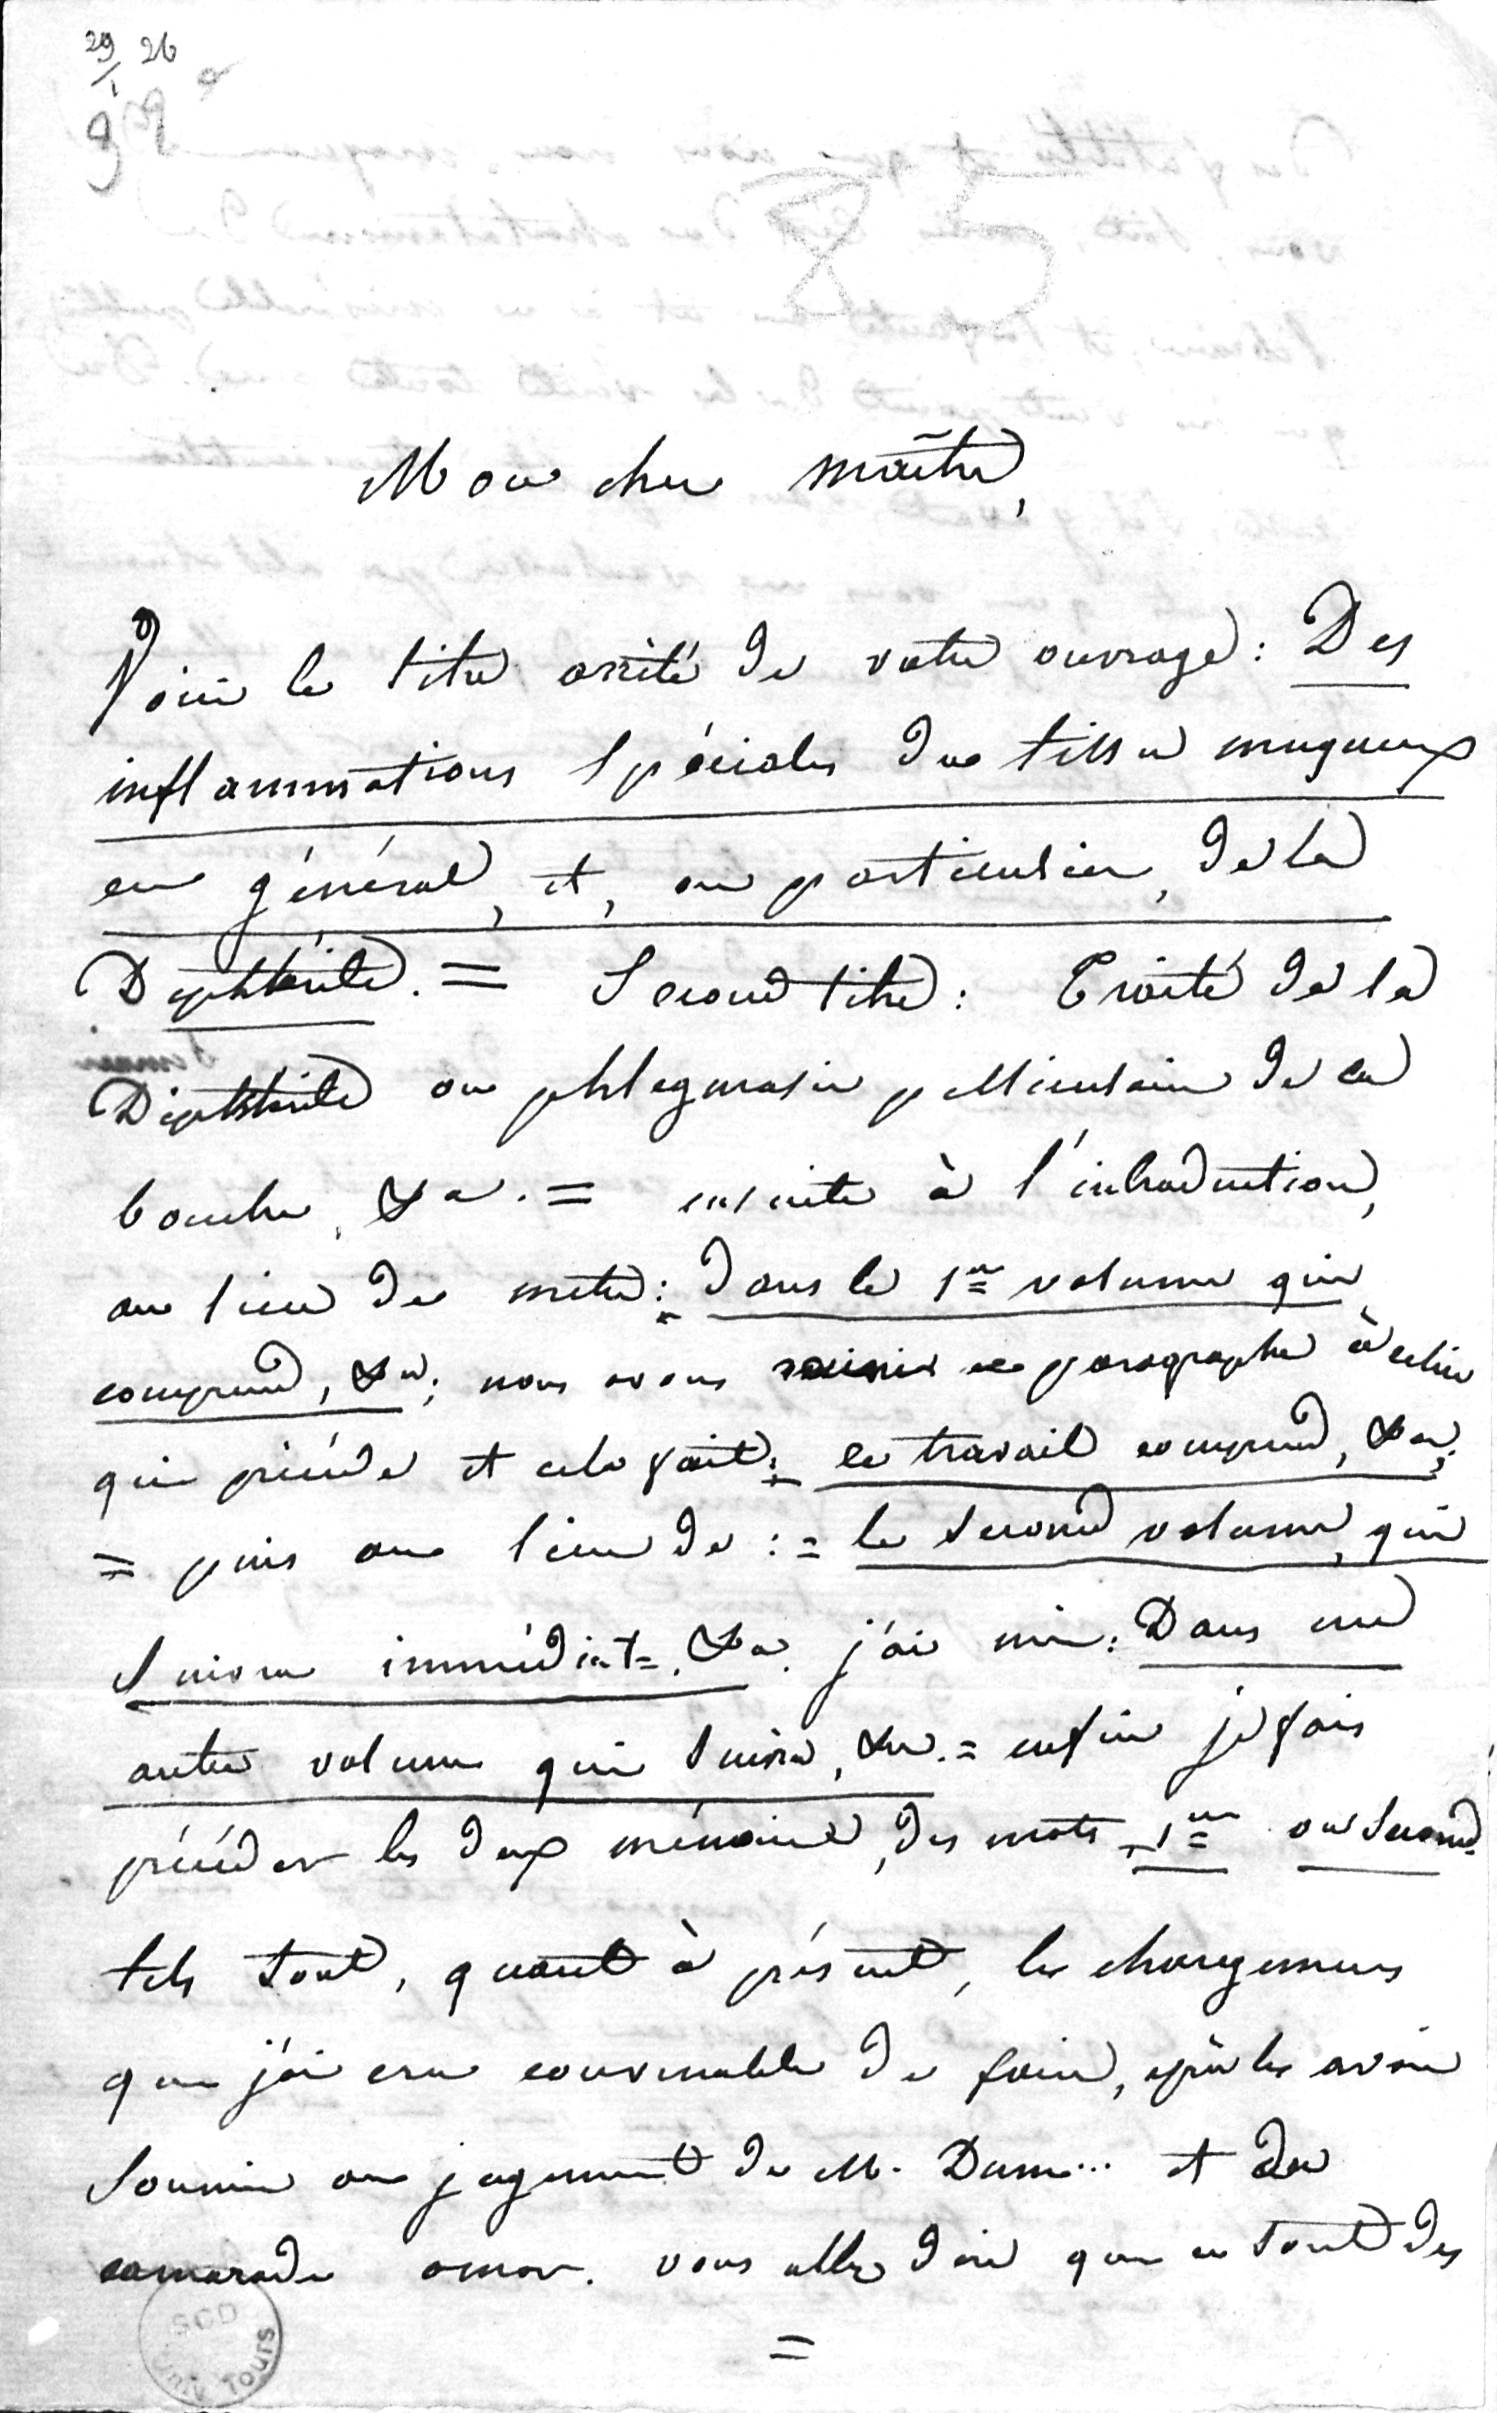 29 26
1
Mon cher maître,
Voici le titre arrêté de votre ouvrage : Des
inflammations spéciales du tissu muqueux
en général, et, en particulier, de la
Diphtérite. = Second titre : Traité de la
Diphtérite ou phlegmasie pelliculaire de la
bouche, &a. = ensuite à l'introduction,
au lieu de mettre : dans le 1er volume qui
comprend, &a; nous avons réuni ce paragraphe à celui
qui précède et cela fait : ce travail comprend, &a;
= puis au lieu de : = le second volume, qui
suivra immédiat=, &a. j'ai mis : Dans un
autre volume qui suivra, &a. = enfin je fais
précéder les deux mémoires, des mots 1er ou second
tels sont, quant à présent, les changemens
que j'ai cru convenable de faire, après les avoir
soumis au jugement de M. Dum... et du
camarade omar. vous allez dire que ce sont des
=
SCD
Univ Tours